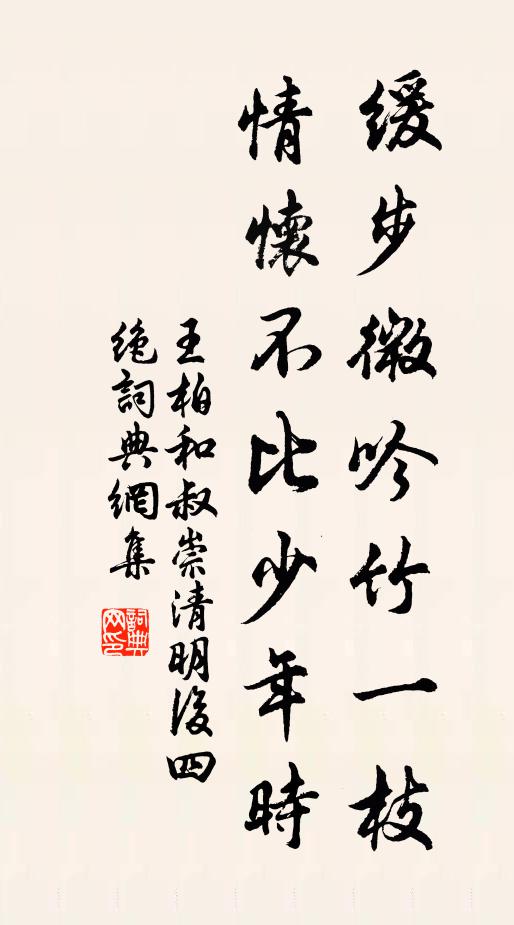 緩步微吟竹一枝
情懷不比少年時
王柏和叔崇清明後四
絶詞典網集
詞典
网印